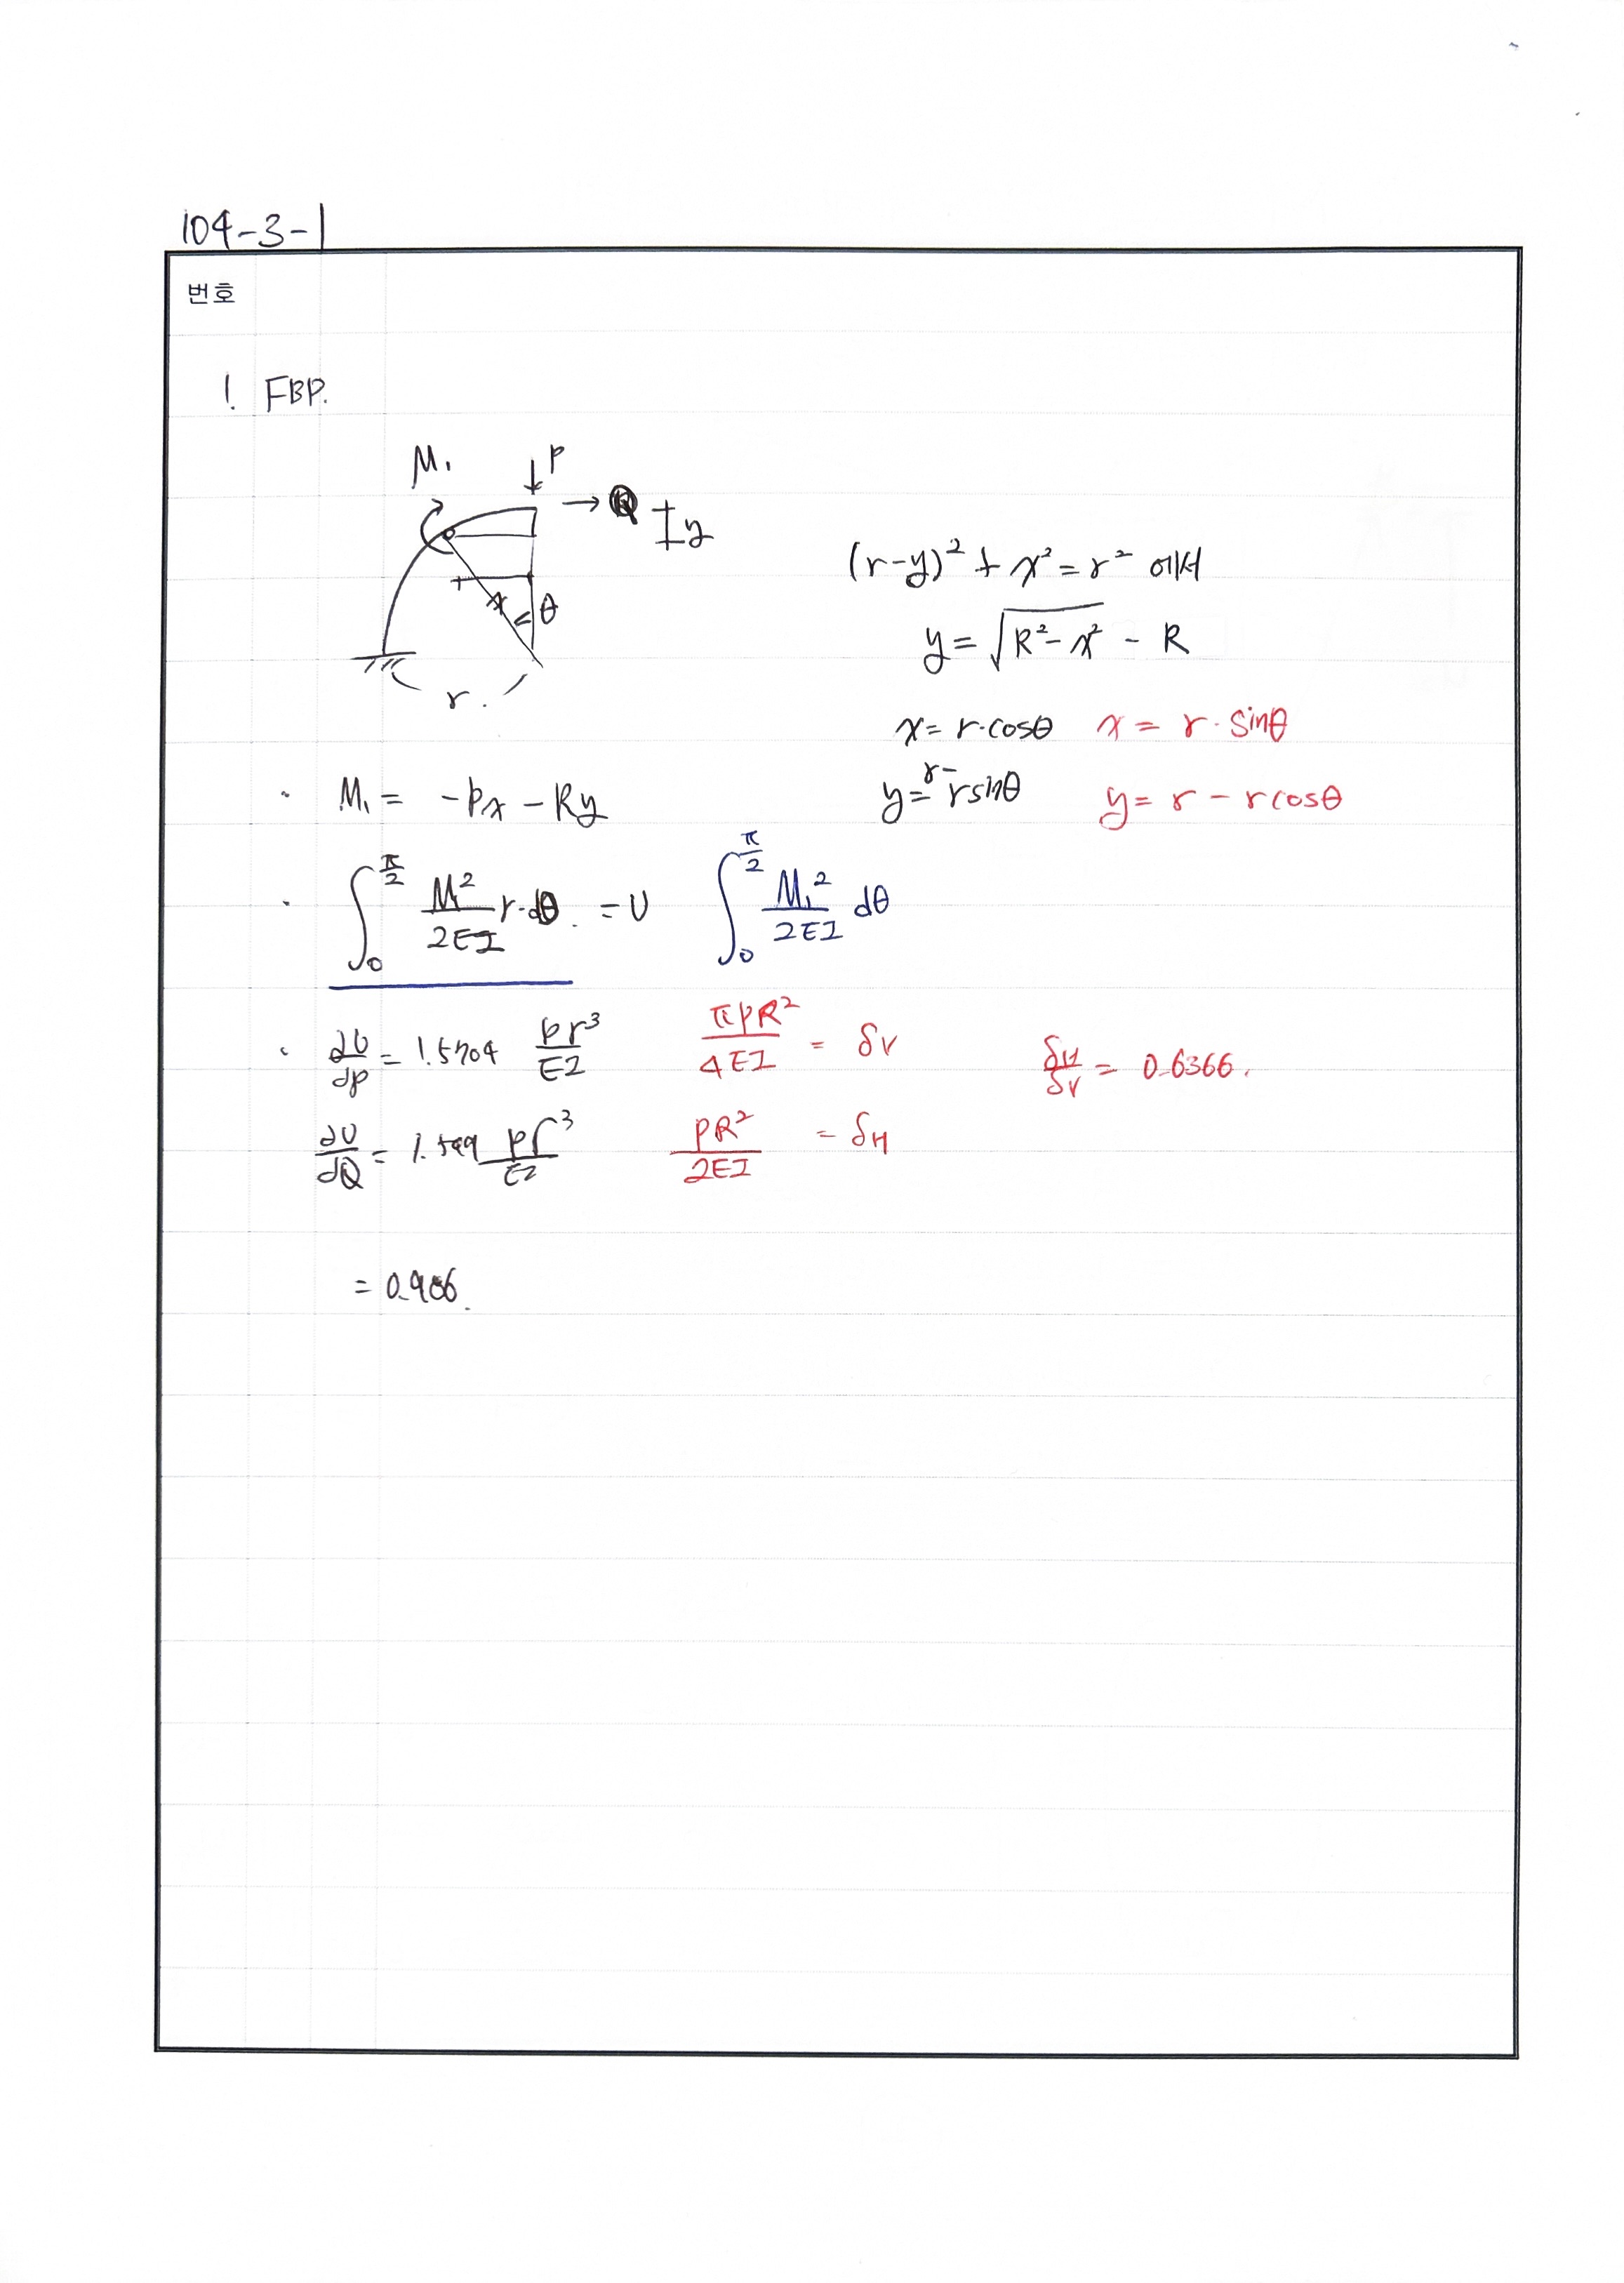 104-3-1
번호
! FBP.
M₁ ↓P
→ Q y
x θ
r.
(r-y)² + x² = r² 에서
y = √(R²-x²) - R
x = r·cosθ x = r·sinθ
y = r-rsinθ y = r - rcosθ
· M₁ = -Px - Ry
· ∫₀^(π/2) M²/2EI r·dθ. = U ∫₀^(π/2) M₁²/2EI dθ
· ∂U/∂P = 1.5704 Pr³/EI πPR²/4EI = δV δH/δV = 0.6366.
∂U/∂Q = Pr³/EI PR²/2EI = δH